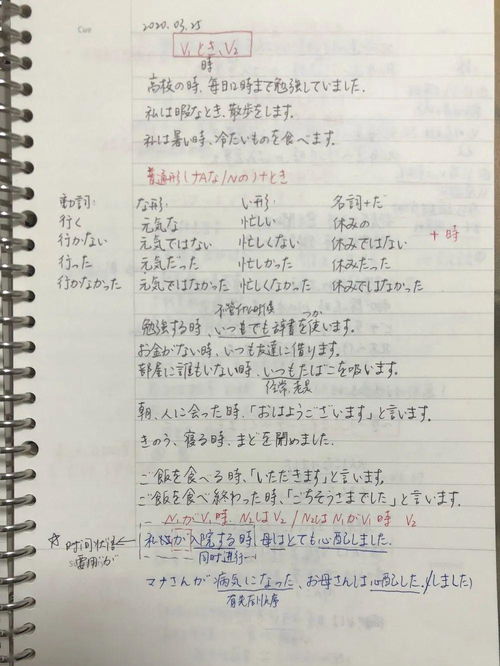 Cue
2020.03.25
V₁ とき、V₂
時
高校の時、毎日12時まで勉強していました.
私は暇なとき、散歩をします.
私は暑い時、冷たいものを食べます.
普通形(ナAな/Nの)+とき
動詞: な形: い形: 名詞+だ
行く 元気な 忙しい 休みの
行かない 元気ではない 忙しくない 休みではない
+ 時
行った 元気だった 忙しかった 休みだった
行かなかった 元気ではなかった 忙しくなかった 休みではなかった
不管什么时候
つか
勉強する時、いつもでも辞書を使います.
お金がない時、いつも友達に借ります.
部屋に誰もいない時、いつもたばこを吸います.
经常,老是
朝、人に会った時、「おはようございます」と言います.
きのう、寝る時、まどを開めました.
ご飯を食べる時、「いただきます」と言います.
ご飯を食べ終わった時、「ごちそうさまでした」と言います.
N₁がV₁時 N₂はV₂ / N₂はN₁がV₁時 V₂
☆ 时间状语 ← 私はが入院する時 母はとても心配しました.
専用が
同时进行
マナさんが病気になった、お母さんは心配した./しました)
有先后顺序